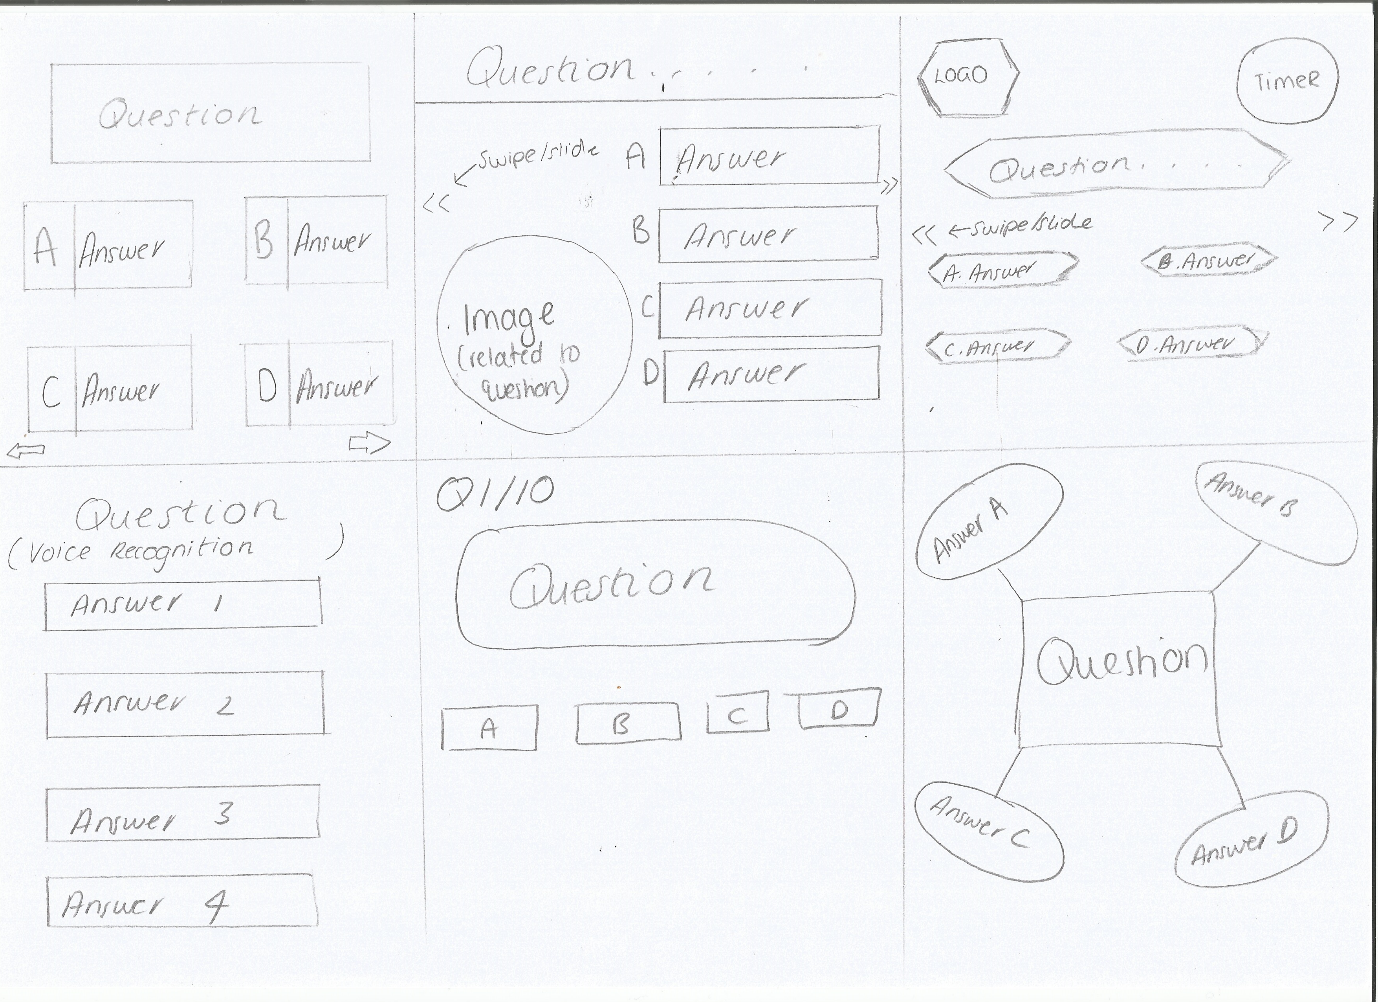 Question
A Answer
B Answer
C Answer
D Answer
Question . . . . .
<< ← Swipe/slide >>
A Answer
B Answer
C Answer
D Answer
Image
(related to
question)
LOGO
TimeR
Question . . . .
<< ← Swipe/slide >>
A. Answer
B. Answer
C. Answer
D. Answer
Question
(Voice Recognition )
Answer 1
Answer 2
Answer 3
Answer 4
Q1/10
Question
A B C D
Answer A
Answer B
Question
Answer C
Answer D